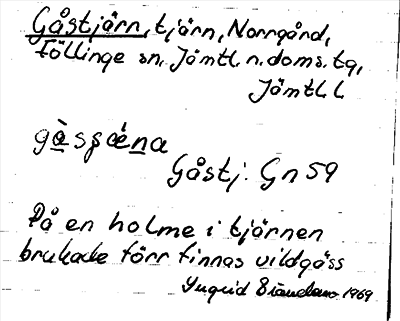 Gåstjärn, tjärn, Norrgård,
Föllinge sn, Jämtl. n. doms. tg,
Jämtl. l
Gåstj. Gn 59
På en holme i tjärnen
brukade förr finnas vildgäss
Ingrid 1969